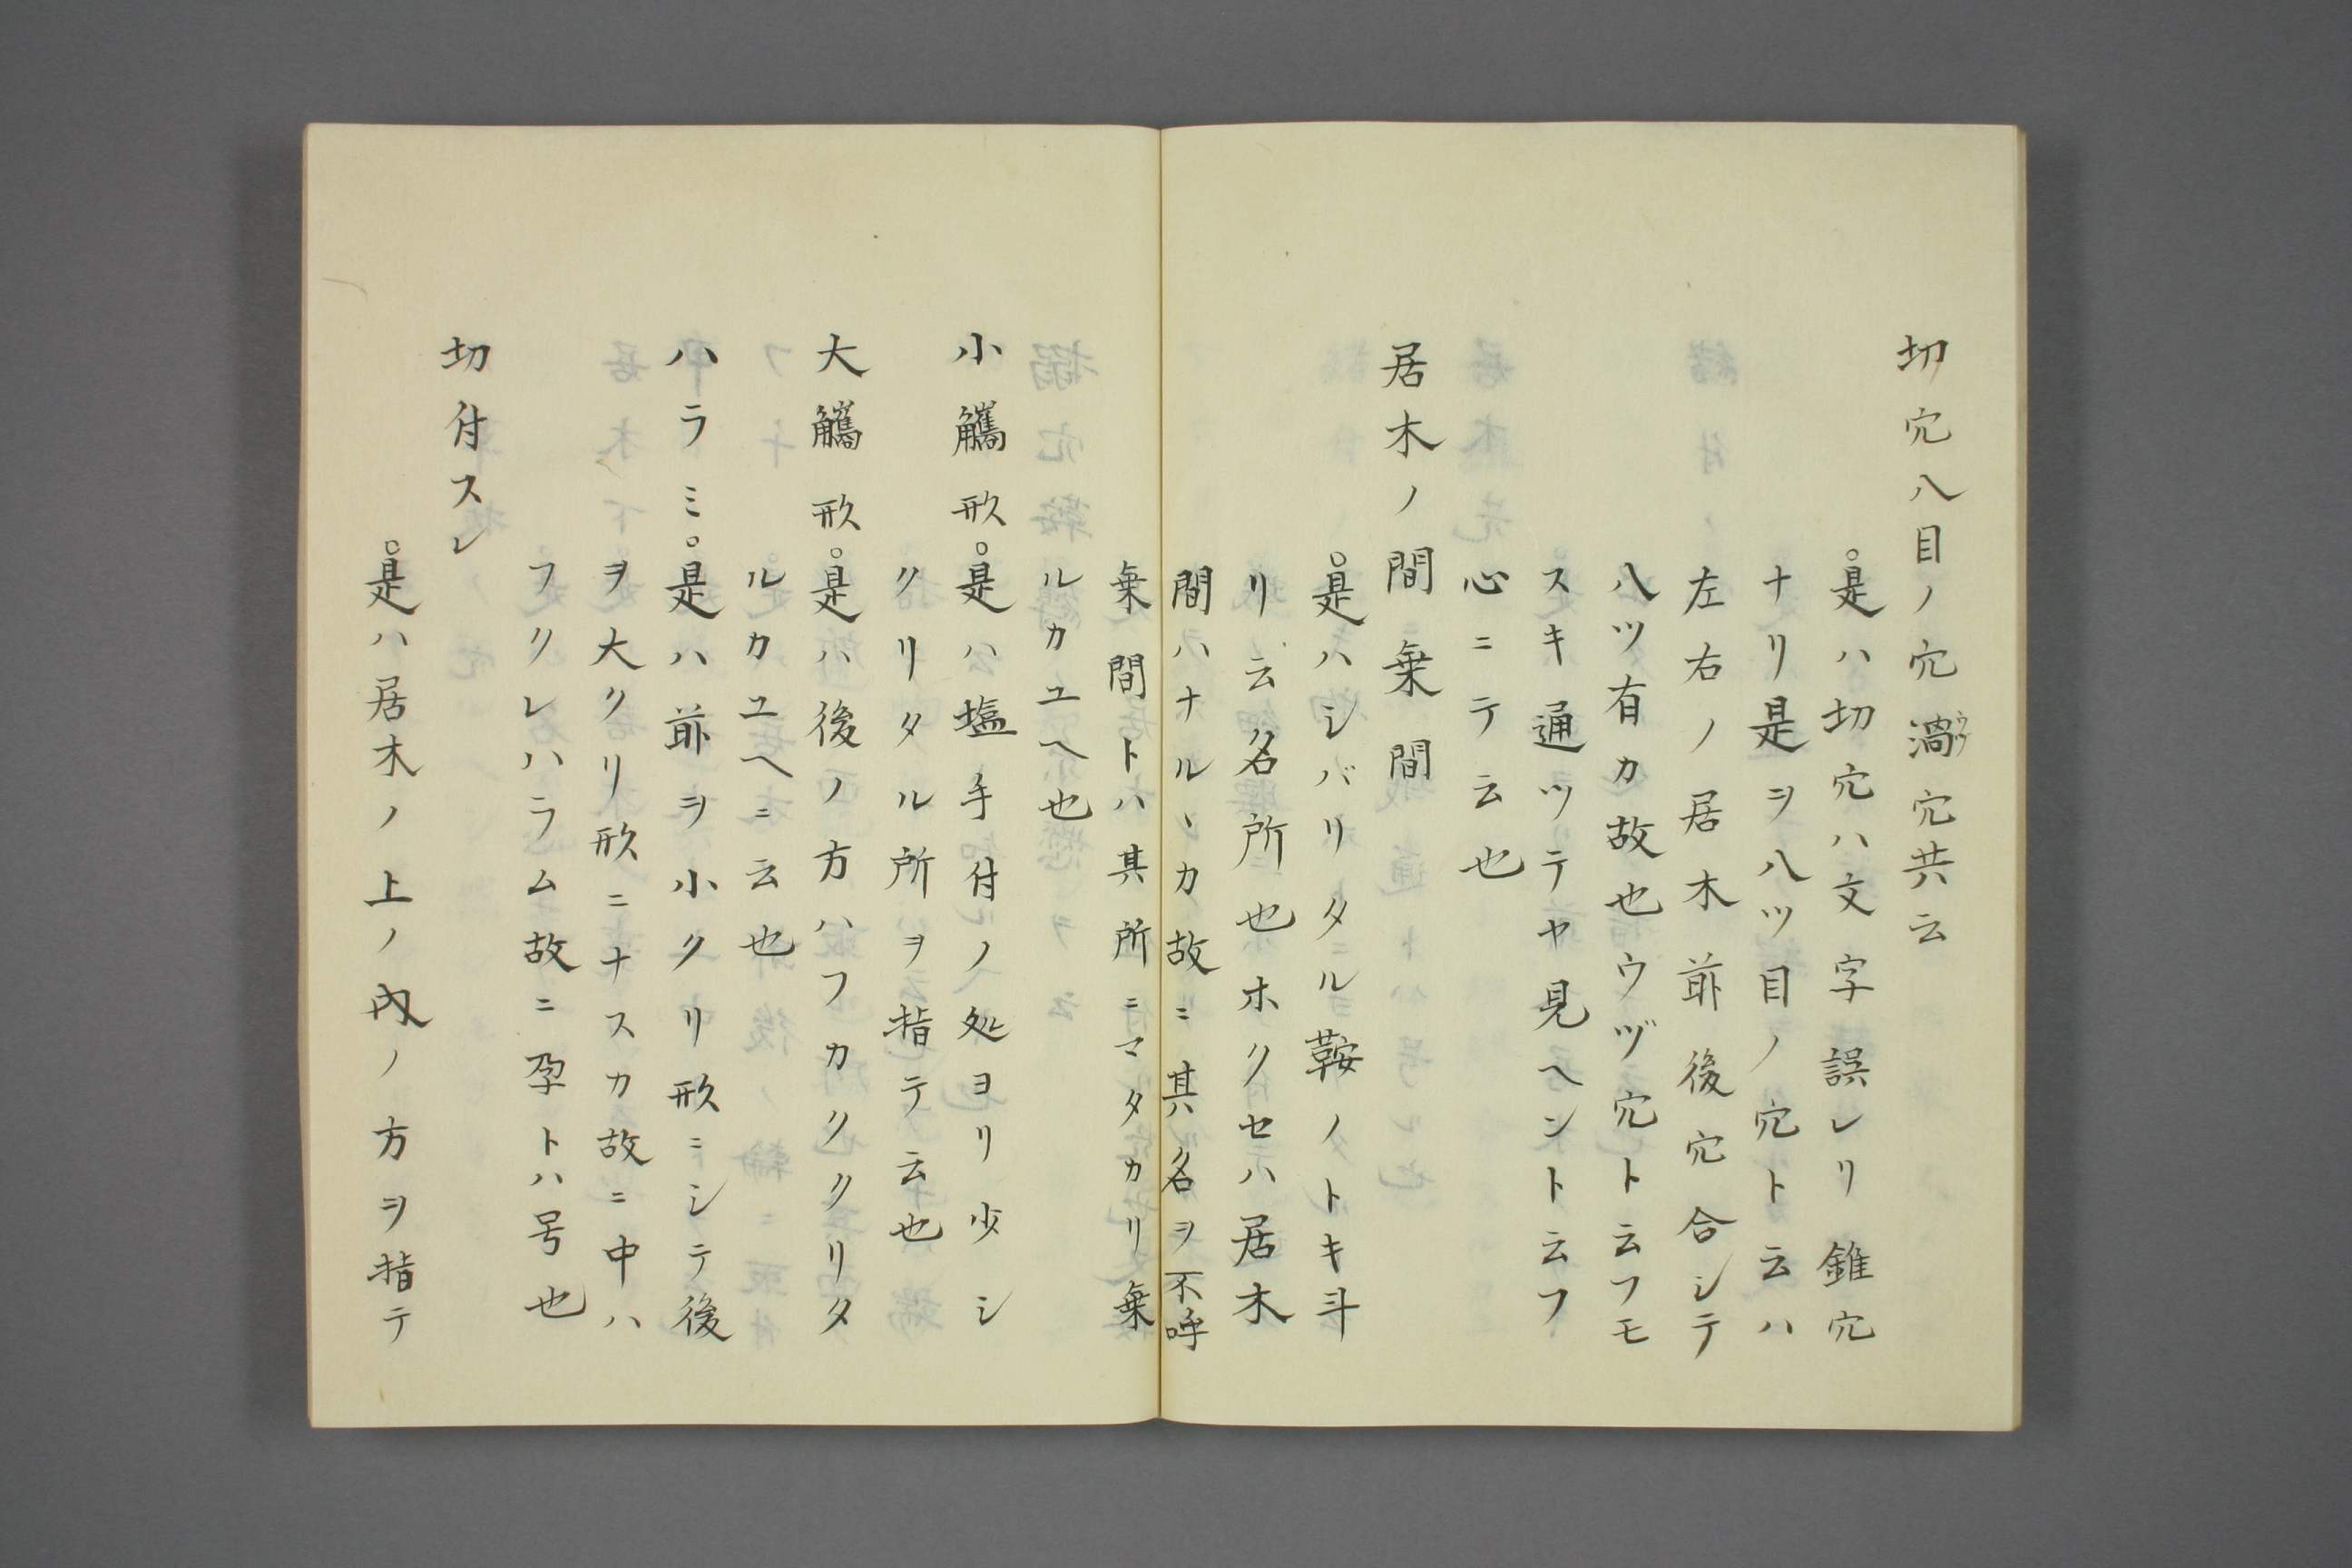 切穴八目ノ穴渦穴共云
ウヅ
是ハ切穴ハ文字誤レリ錐穴
ナリ是ヲ八ツ目ノ穴ト云ハ
左右ノ居木前後穴合シテ
八ツ有カ故也ウヅ穴ト云フモ
スキ通ツテヤ見ヘント云フ
心ニテ云也
居木ノ間乗間
是ハシバリタル鞍ノトキ斗
リ云名所也ホクセハ居木
間ハナルヽカ故ニ其名ヲ不呼
乗間トハ其所ニマタカリ乗
ルカユヘ也
小觿形是ハ塩手付ノ処ヨリ少シ
クリタル所ヲ指テ云也
大觿形是ハ後ノ方ハフカクリタ
ルカユヘニ云也
ハラミ是ハ前ヲ小クリ形ニシテ後
ヲ大クリ形ニナスカ故ニ中ハ
フクレハラム故ニ孕トハ号也
切付スレ
是ハ居木ノ上ノ内ノ方ヲ指テ